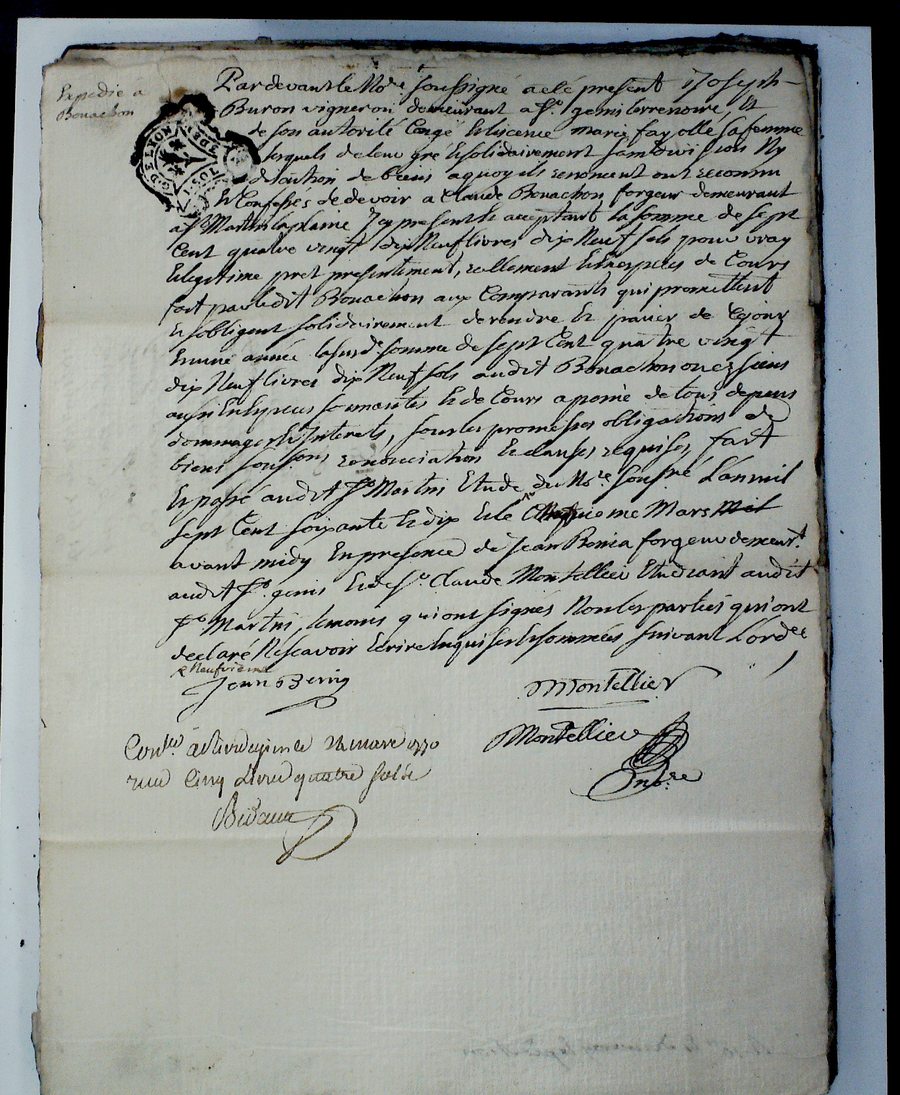 Expedié à
Bonachon
G. DE LYON
Pardevant le No.re soussigné a eté present Joseph
Buron vigneron demeurant a St. genis terrenoire, Et
de son autorité Congé Et licence marie fayolle sa femme
lesquels de leur gré Et solidairement sans division Ny
discution de biens a quoy ils renoncent ont reconnu
Et Confessés de devoir a Claude Bonachon forgeur demeurant
a St. Martin laplaine Icy present Et acceptant la somme de sept
Cent quatre vingt dix Neuf livres dix Neuf sols pour vray
Et legitime pret presentement, reellement Et En especes de Cours
fait par ledit Bonachon aux Comparants qui promettent
Et s'obligent solidairement de rendre Et paier de Ce jour
En une année lasusd.e somme de sept Cent quatre vingt
dix Neuf livres dix Neuf sols audit Bonachon ou ez siens
aussi En Especes sonnantes Et de Cours a peine de tous depens
dommages Et Interets, sous les promesses obligations de
biens soussions renonciation Et clauses requises, fait
Et passé audit St. Martin Etude du No.re soussné L'an mil
sept Cent soixante Et dix Et le Cinquieme Mars mil
avant midy En presence de Jean Benier forgeur demeur.t
audit St. genis Et de Sr. Claude Montellier Etudiant audit
St. Martin, temoins qui ont signés Non les parties qui ont
declaré Ne scavoir Ecrire Enquises Et sommées suivant L'ord.ce
Neufvieme
Jean Beniy
Montellier
Montellier
No.re
Con.lé à Rivedegier le 21 mars 1770
reçu Cinq Livres quatre sols
Bidaux